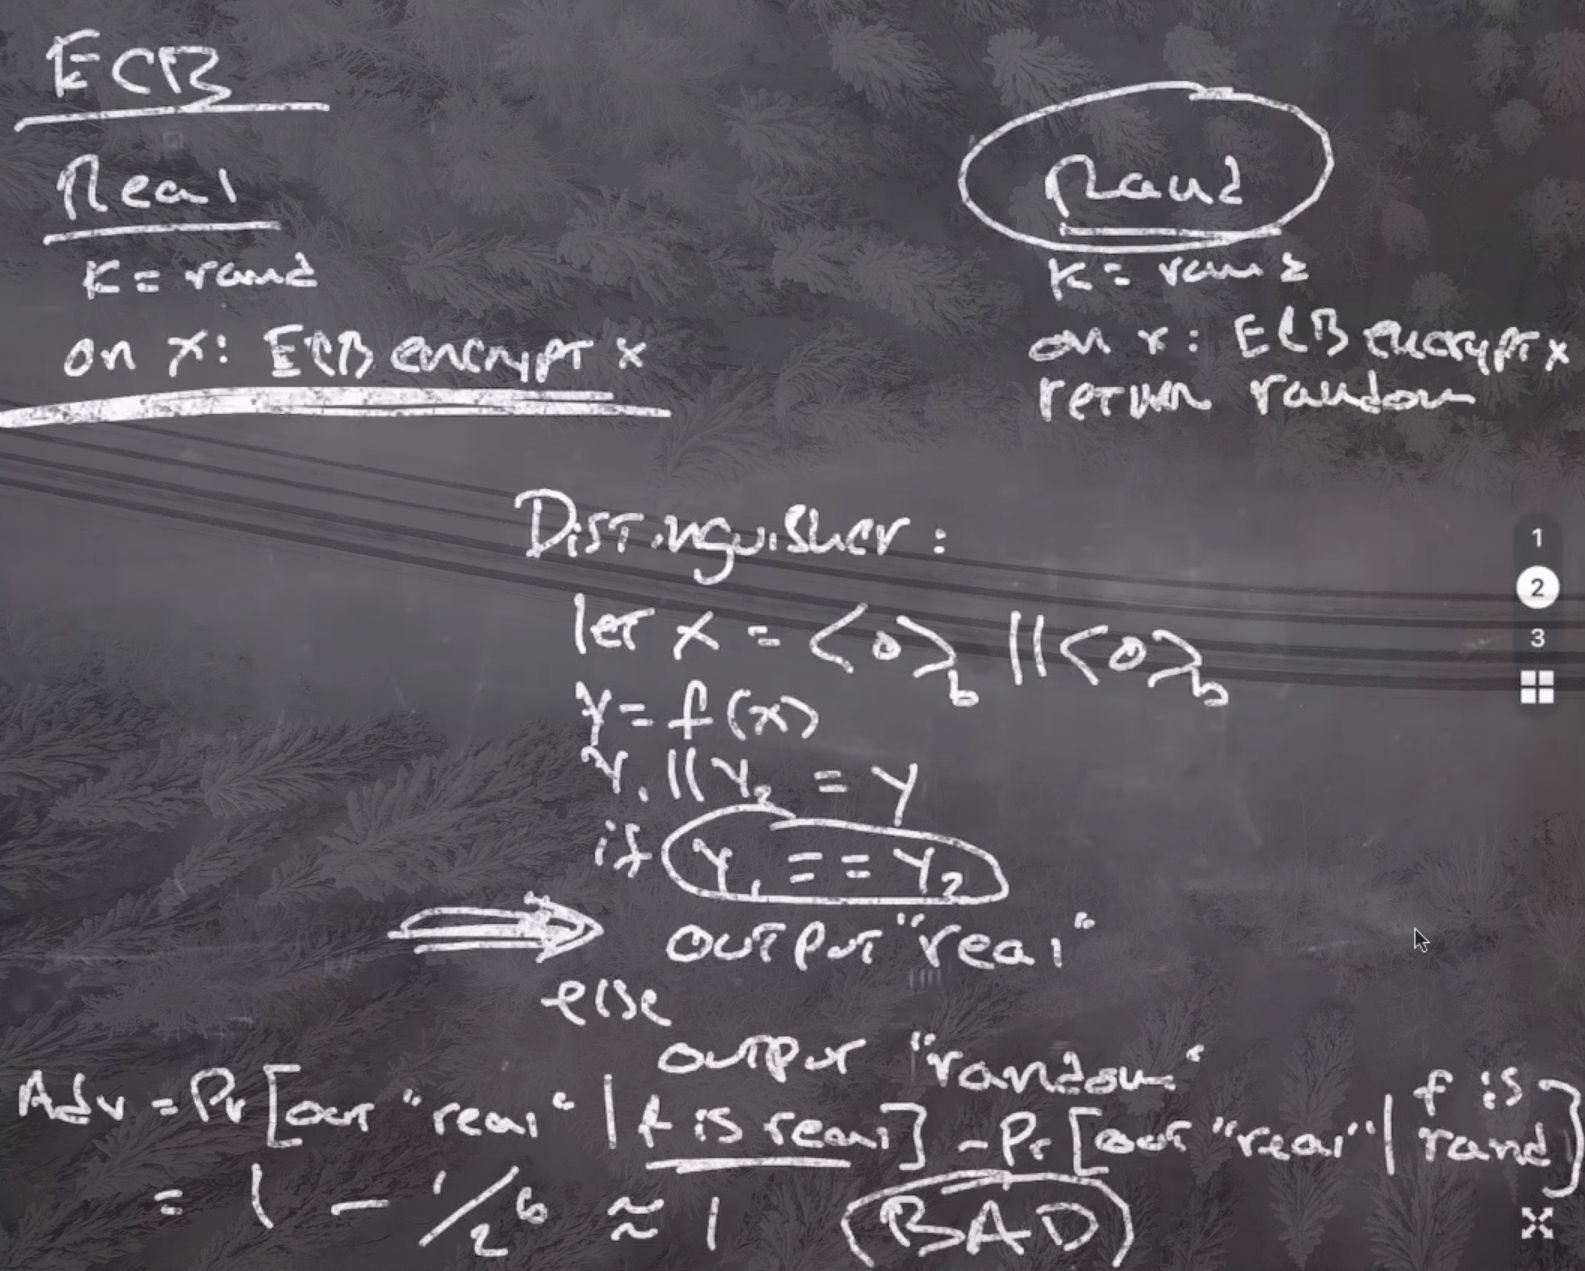 ECB
Real
K = rand
on x: ECB encrypt x
Rand
K = rand
on x: ECB encrypt x
return random
Distinguisher:
let x = <0>_b || <0>_b
Y = f(x)
Y_1 || Y_2 = Y
if Y_1 == Y_2
output "real"
else
output "random"
Adv = Pr[out "real" | f is real] - Pr[out "real" | f is rand]
= 1 - 1/2^b ≈ 1 (BAD)
1
2
3